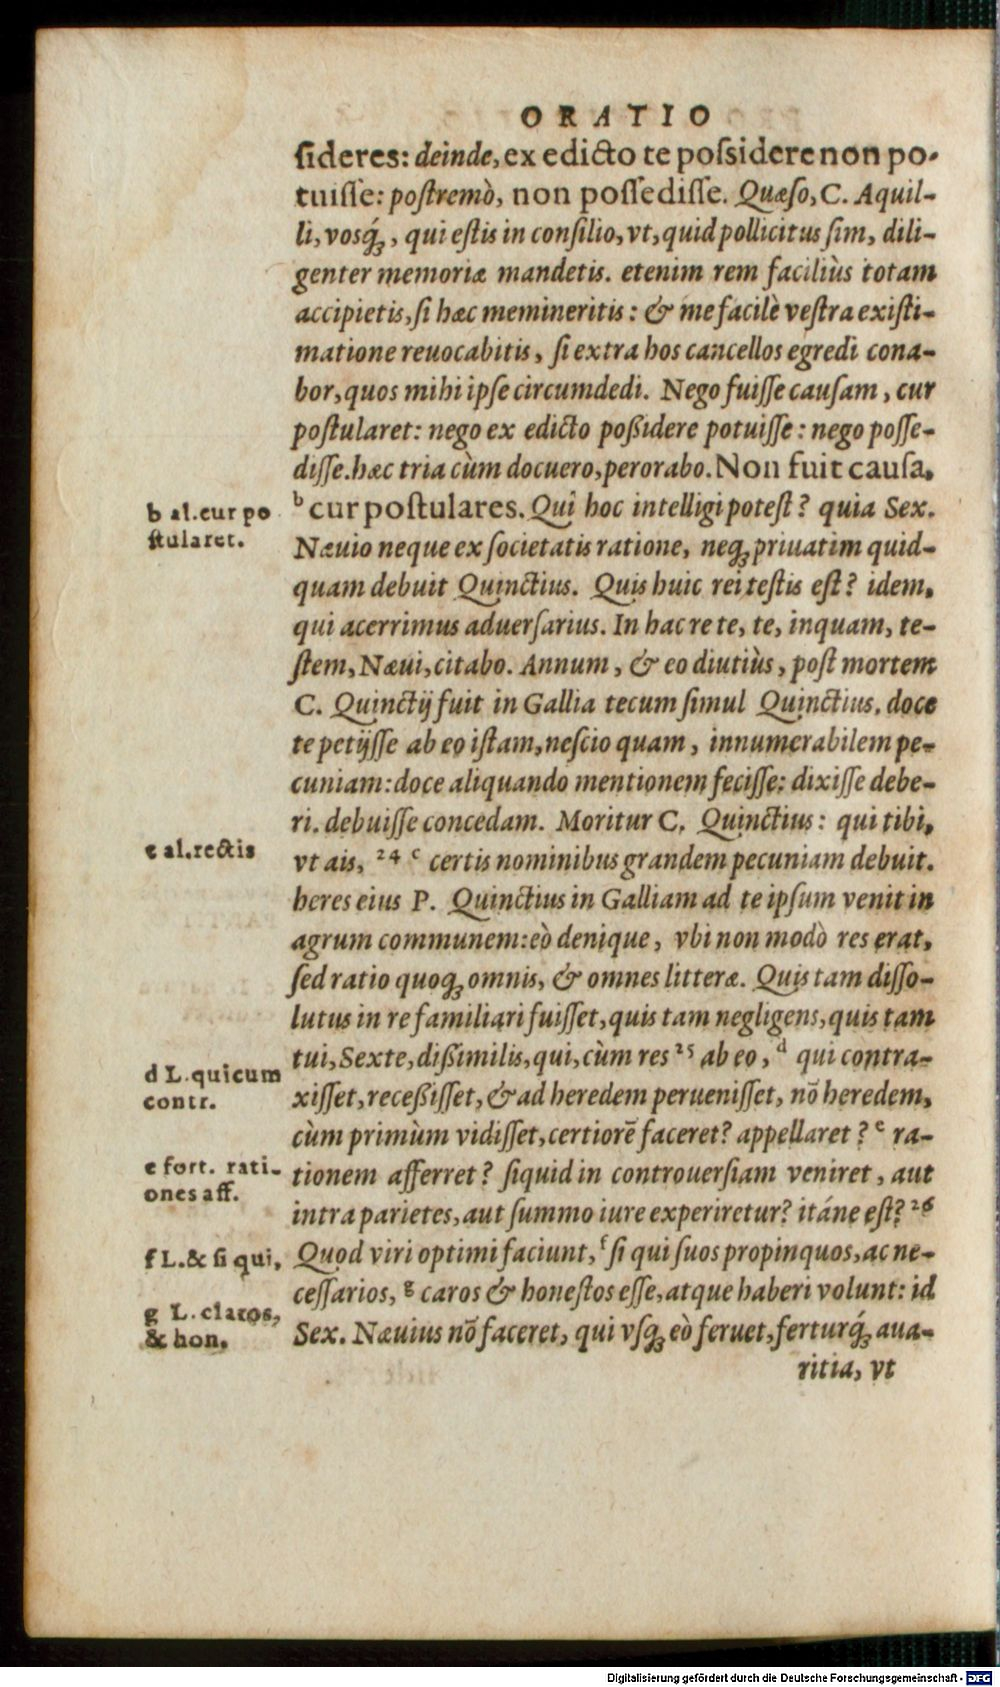 ORATIO
ſideres: deinde, ex edicto te poſsidere non po-
tuiſſe: poſtremò, non poſſediſſe. Quæſo, C. Aquil-
li, vosq́;, qui eſtis in conſilio, vt, quid pollicitus ſim, dili-
genter memoriæ mandetis. etenim rem faciliùs totam
accipietis, ſi hæc memineritis: & me facilè veſtra exiſti-
matione reuocabitis, ſi extra hos cancellos egredi cona-
bor, quos mihi ipſe circumdedi. Nego fuiſſe cauſam, cur
poſtularet: nego ex edicto poßidere potuiſſe: nego poſſe-
diſſe. hæc tria cùm docuero, perorabo. Non fuit cauſa,
b al. cur po
ſtularet.
b cur poſtulares. Quî hoc intelligi poteſt? quia Sex.
Næuio neque ex ſocietatis ratione, neq; priuatim quid-
quam debuit Quinctius. Quis huic rei teſtis eſt? idem,
qui acerrimus aduerſarius. In hac re te, te, inquam, te-
ſtem, Næui, citabo. Annum, & eo diutiùs, poſt mortem
C. Quinctij fuit in Gallia tecum ſimul Quinctius. doce
te petijſſe ab eo iſtam, neſcio quam, innumerabilem pe-
cuniam: doce aliquando mentionem feciſſe: dixiſſe debe-
ri. debuiſſe concedam. Moritur C. Quinctius: qui tibi,
c al. rectis
vt ais, 24 c certis nominibus grandem pecuniam debuit.
heres eius P. Quinctius in Galliam ad te ipſum venit in
agrum communem: eò denique, vbi non modò res erat,
ſed ratio quoq; omnis, & omnes litteræ. Quis tam diſſo-
lutus in re familiari fuiſſet, quis tam negligens, quis tam
tui, Sexte, dißimilis, qui, cùm res 25 ab eo, d qui contra-
d L. quicum
contr.
xiſſet, receßiſſet, & ad heredem perueniſſet, nō heredem,
cùm primùm vidiſſet, certiorē faceret? appellaret? e ra-
e fort. rati-
ones aff.
tionem afferret? ſiquid in controuerſiam veniret, aut
intra parietes, aut ſummo iure experiretur? itáne eſt? 26
f L. & ſi qui,
Quod viri optimi faciunt, f ſi qui ſuos propinquos, ac ne-
g L. claros,
& hon.
ceſſarios, g caros & honeſtos eſſe, atque haberi volunt: id
Sex. Næuius nō faceret, qui vſq; eò feruet, ferturq́; aua-
ritia, vt
Digitalisierung gefördert durch die Deutsche Forschungsgemeinschaft - DFG